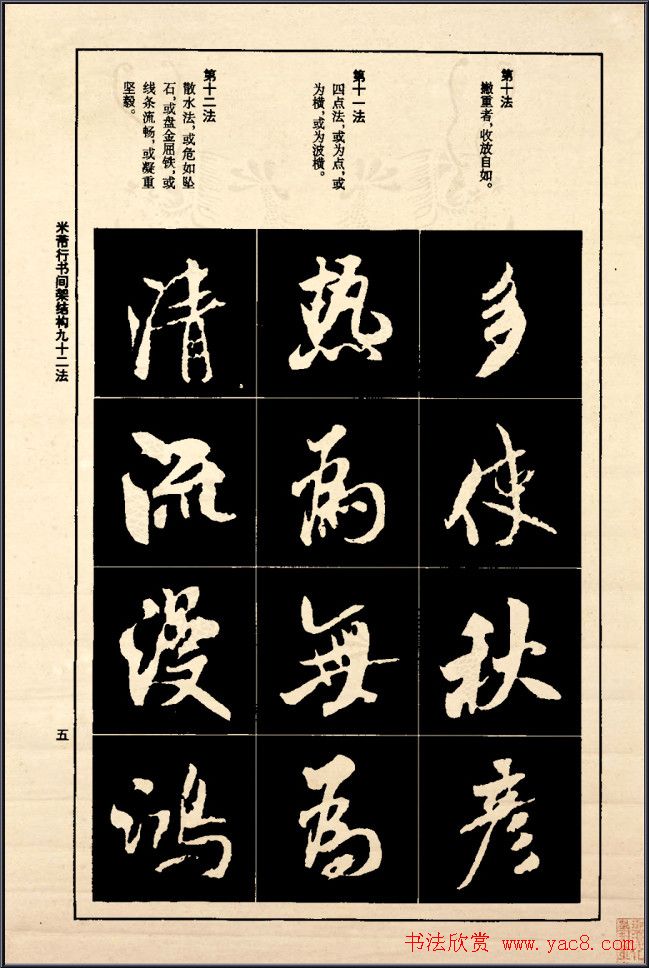 第十法
撇重者，收放自如。
第十一法
四点法，或为点，或
为横，或为波横。
第十二法
散水法，或危如坠
石，或盘金屈铁，或
线条流畅，或凝重
坚毅。
多
使
秋
彦
热
为
無
为
清
流
漫
鸿
米芾行书间架结构九十二法
五
书法欣赏 www.yac8.com